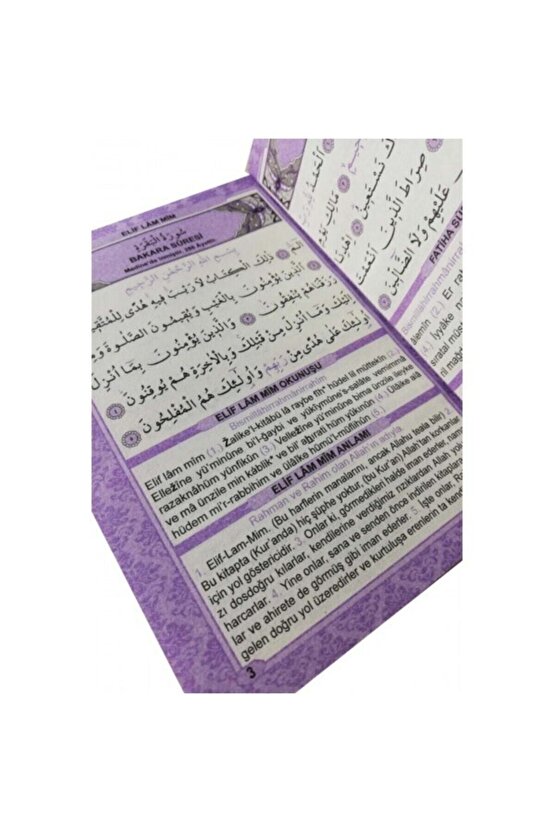 ELİF LÂM MÎM
سُورَةُ الْبَقَرَةِ
BAKARA SÛRESİ
بِسْمِ اللهِ الرَّحْمٰنِ الرَّحِيمِ
الٓمٓ ذٰلِكَ الْكِتَابُ لَا رَيْبَ فِيهِ هُدًى لِلْمُتَّقِينَ
اَلَّذِينَ يُؤْمِنُونَ بِالْغَيْبِ وَيُقِيمُونَ الصَّلٰوةَ
رَزَقْنَاهُمْ يُنْفِقُونَ وَالَّذِينَ يُؤْمِنُونَ بِمَا اُنْزِلَ
اِلَيْكَ وَمَا اُنْزِلَ مِنْ قَبْلِكَ وَبِالْاٰخِرَةِ هُمْ يُوقِنُونَ
اُولٰئِكَ عَلٰى هُدًى مِنْ رَبِّهِمْ وَاُولٰئِكَ هُمُ الْمُفْلِحُونَ
ELİF LÂM MÎM OKUNUŞU
Bismillâhirrahmânirrahîm
Elif lâm mîm (1.) Žalike'l-kitâbü lâ raybe fîh* hüdel lil müttekîn (2.)
Elležîne yü'minûne bi'l-ğaybi ve yükîymûne's-salâte vemimmâ
razaknâhüm yünfikûn (3.) Velležîne yü'minûne bima ünzile ileyke
ve mâ ünzile min kablik* ve bil' aḫirati hüm yûkınûn (4.) Ülâike alâ
hüdem mi'r-rabbihim ve ülâike hümü'l-müflihûn (5.)
ELİF LÂM MÎM ANLAMI
Rahman ve Rahim olan Allah'ın adıyla
1. Elif-Lam-Mim. (Bu harflerin manalarını, ancak Allahu teala bilir) 2.
Bu kitapta (Kur'anda) hiç şüphe yoktur, (bu Kur'an) Allah'tan korkanlar
için yol göstericidir. 3. Onlar ki görmedikleri halde iman ederler,
zı dosdoğru kılarlar, kendilerine verdiğimiz rızıklardan Allah
harcarlar. 4. Yine onlar, sana ve senden önce indirilen
lar ve ahirete de görmüş gibi iman ederler. 5. İşte onlar,
gelen doğru yol üzeredirler ve kurtuluşa erenlem ta
3
اَلْحَمْدُ
مَالِكِ
نَسْتَعِينُ اِهْدِنَا
صِرَاطَ الَّذِينَ اَنْعَمْتَ
عَلَيْهِمْ وَلَا الضَّالِّينَ
FATİHA
Bismillâhirrahmânirrahîm
âlemîn. (2.) Er
(4.) İyyâke
sıratal